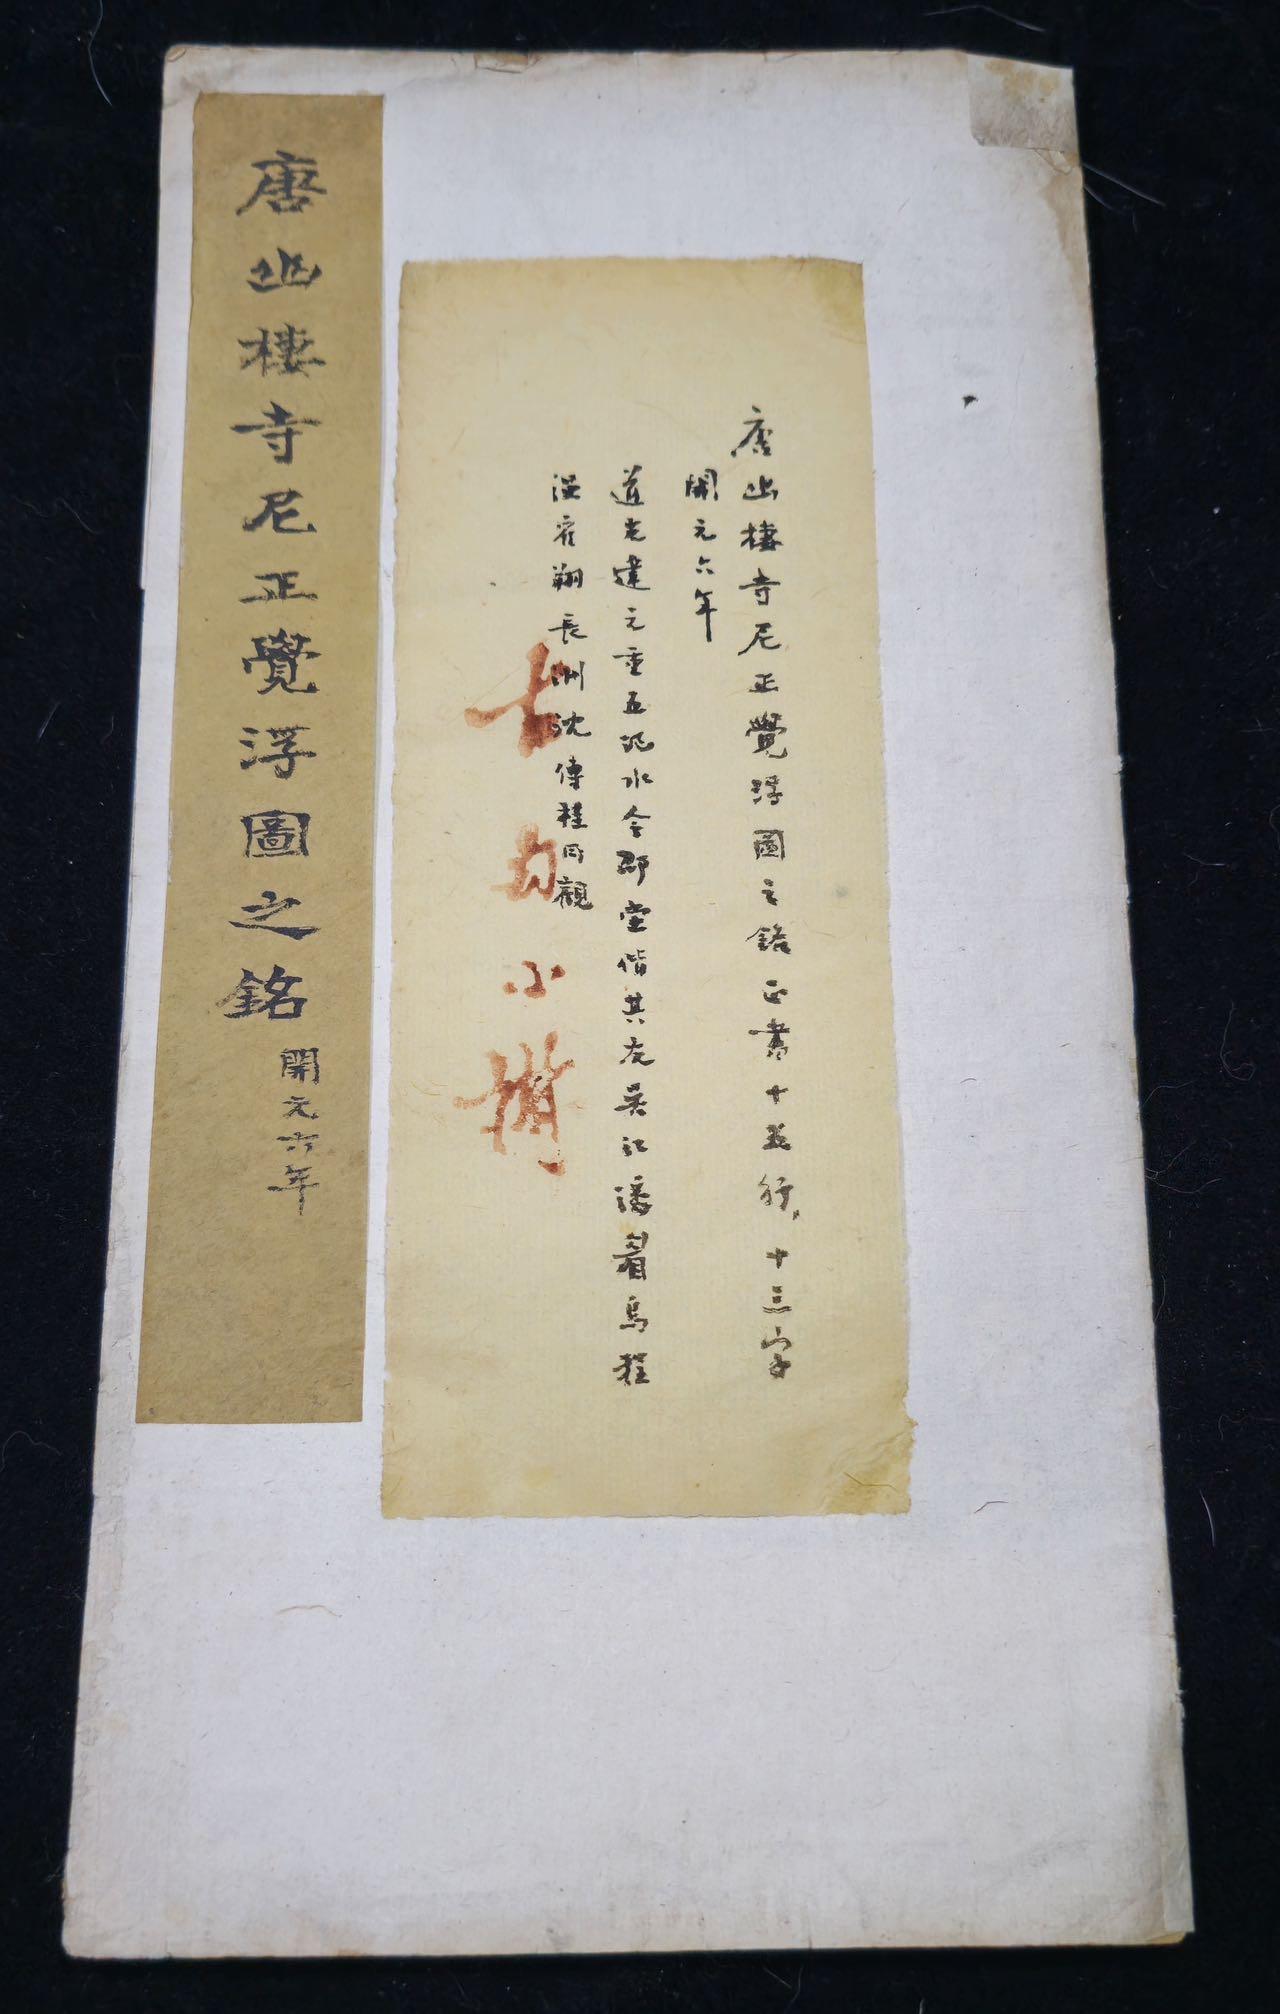 唐幽棲寺尼正覺浮圖之銘正書十五行行十三字
開元六年
道光建元重五汜水令郡堂偕其友吳江潘眉烏程
溫翔長洲沈傳桂同觀
唐幽棲寺尼正覺浮圖之銘
開元六年